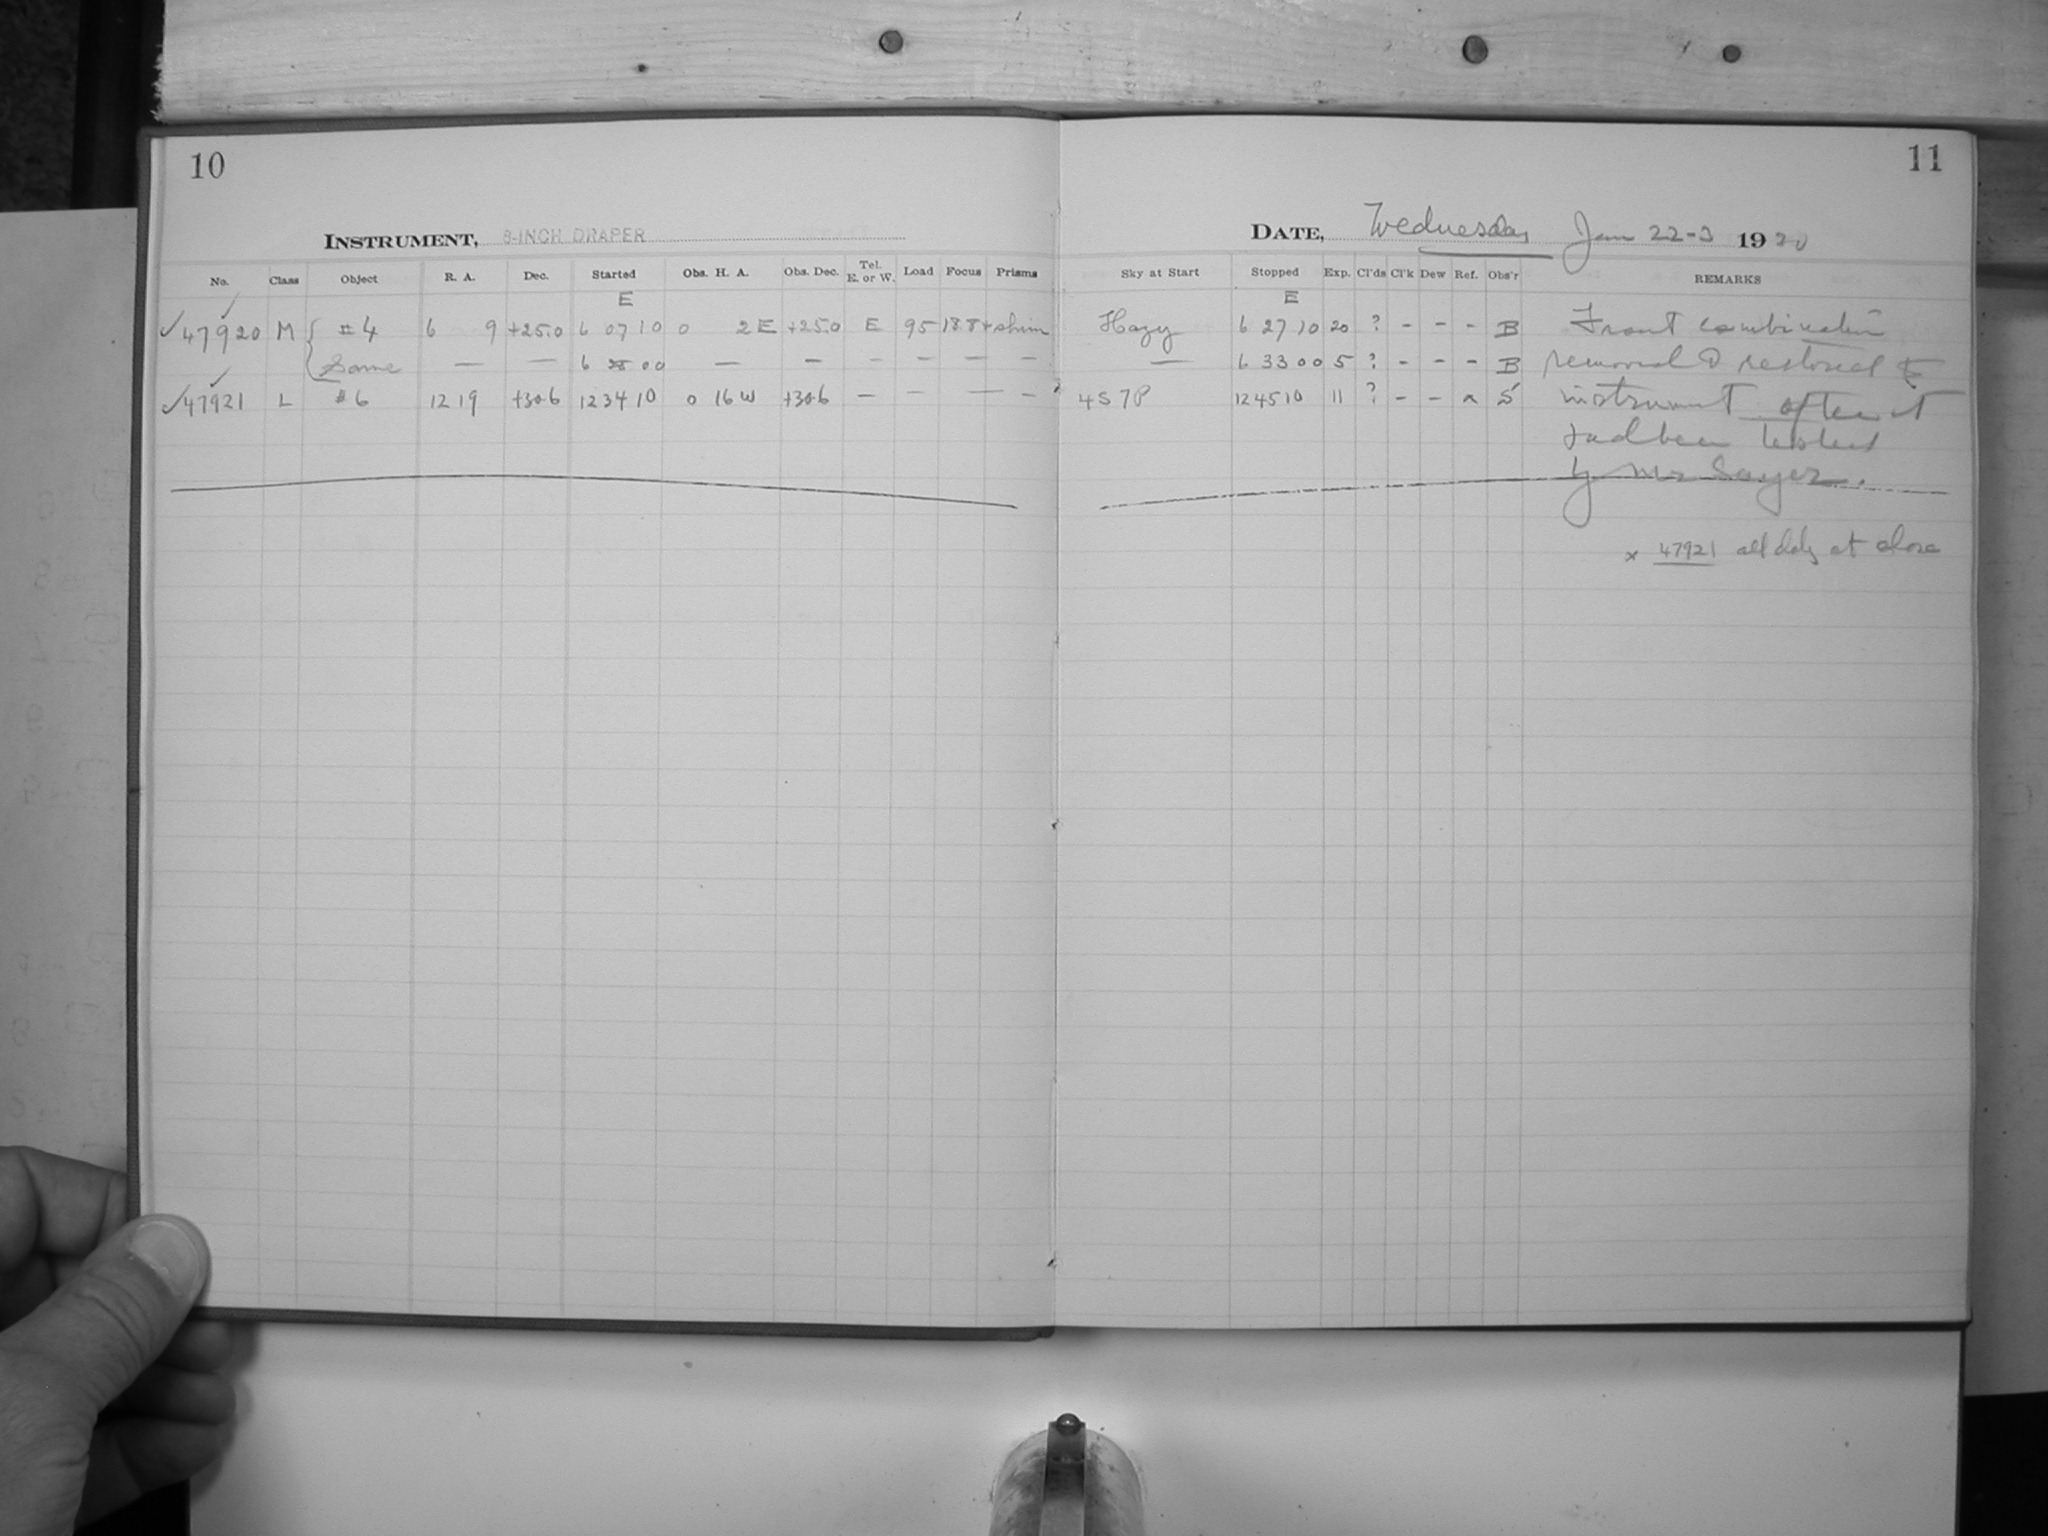 10
INSTRUMENT, 8-INCH DRAPER
No. Class Object R. A. Dec. Started Obs. H. A. Obs. Dec. Tel. E. or W. Load Focus Prisms
E
✓47920 M { #4 6 9 +25.0 6 07 10 0 2 E +25.0 E 95 18.8 + shim
Same — — 6 28 00 — — — — — —
✓47921 L #6 12 19 +30.6 12 34 10 0 16 W +30.6 — — — —
11
DATE, Wednesday Jan 22-3 1920
Sky at Start Stopped Exp. Cl'ds Cl'k Dew Ref. Obs'r REMARKS
E
Hazy 6 27 10 20 ? - - - B Front combination
— 6 33 00 5 ? - - - B removed & restored to
4 S 7 P 12 45 10 11 ? - - x S instrument after it
had been tested
by Mr Sayer.
x 47921 at close